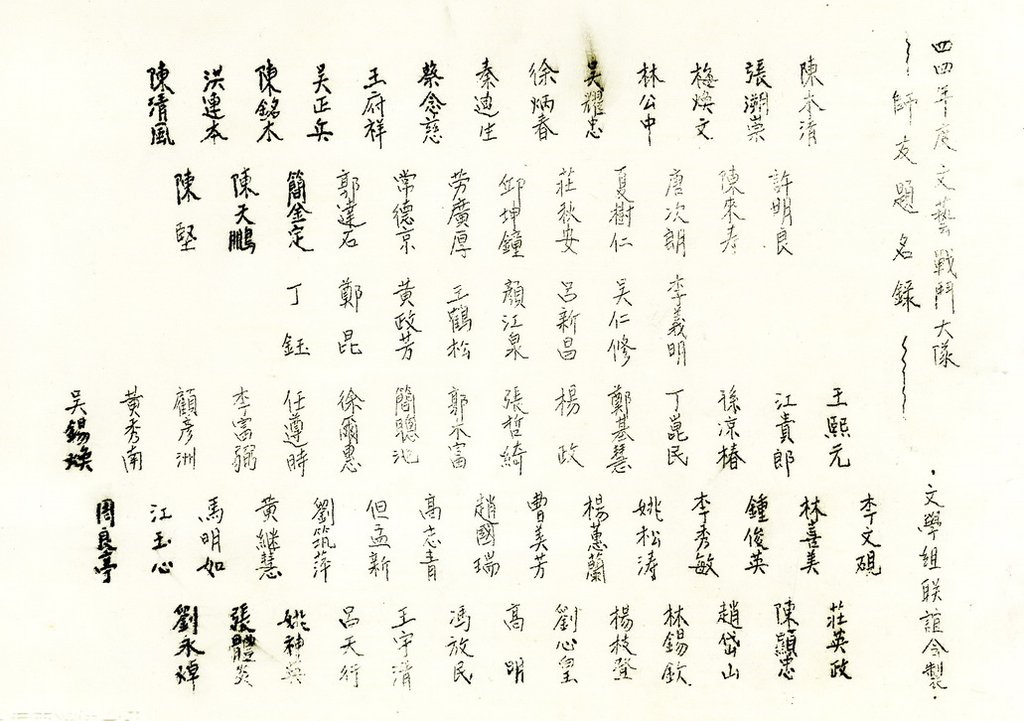 四四年度文藝戰鬥大隊
師友題名錄
・文學組聯誼會製・
陳本清
張溯崇
梅煥文
林公中
吳耀忠
徐炳春
秦迪生
蔡念慈
王府祥
吳正兵
陳銘木
洪連本
陳清風
許明良
陳來春
唐次朗
夏樹仁
莊秋安
邱坤鐘
勞廣厚
常德京
郭蓮石
簡金定
陳天鵬
陳堅
李義明
吳仁修
呂新昌
顏江泉
王鶴松
黃政芳
鄭昆
丁鈺
王熙元
江貴郎
孫凉椿
丁崑民
鄭基慧
楊政
張哲綺
郭木富
簡聰池
徐爾惠
任遵時
李富弼
顧彥洲
黃秀南
吳錫煥
李文硯
林喜美
鍾俊英
李秀敏
姚松濤
楊蕙蘭
曹美芳
趙國瑞
高志青
但孟新
劉筑萍
黃繼慧
馬明如
江玉心
周良亭
莊英政
陳顯忠
趙岱山
林錫欽
楊枝登
劉心皇
高明
馮放民
王宇清
呂天行
姚神英
張體炎
劉永焯